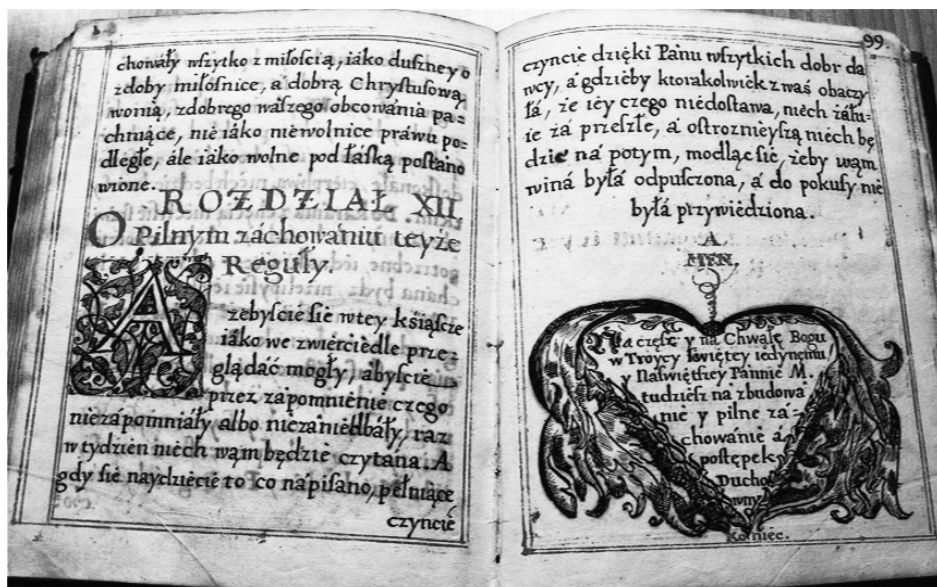 chowáły wſzytko z miłoſcią, iáko duſzney o
zdoby miłoſnice, a dobrą Chryſtuſową
wonią, z dobrego wáſzego obcowánia pa-
chniące, nie iáko niewolnice práwu po-
dległe, ále iako wolne pod łáſką poſtano
wione.
ROZDZIAŁ XII.
O Pilnym záchowániu teyże
Reguły.
A żebyſcie ſie w tey kſiąſzce
iáko we zwierciedle prze-
glądáć mogły, abyſcie
przez zapomnienie czego
nie zápomniáły albo niezaniedbáły, raz
w tydzien niech wąm będzie czytána. A
gdy ſie naydziecie to co nápiſano, pełniące
czyncie
99.
czyncie dzięki Pánu wſzytkich dobr da
wcy, á gdzieby ktorakolwiek z waś obaczy
łá, że iey czego niedoſtawa, niech żáłu-
ie zá przeſzłe, á oſtroznieyſzą niech bę
dzie ná potym, modląc ſie, żeby wąm
winá byłá odpuſczona, á do pokuſy nie
byłá przywiedziona.
A
MEN.
Na część y na Chwałę Bogu
w Troycy świętey iedynemu
y Naſwiętſzey Pannie M.
tudzieſz na zbudowa
nie y pilne zá-
chowánie á
poſtępek
Ducho
wny
Koniec.